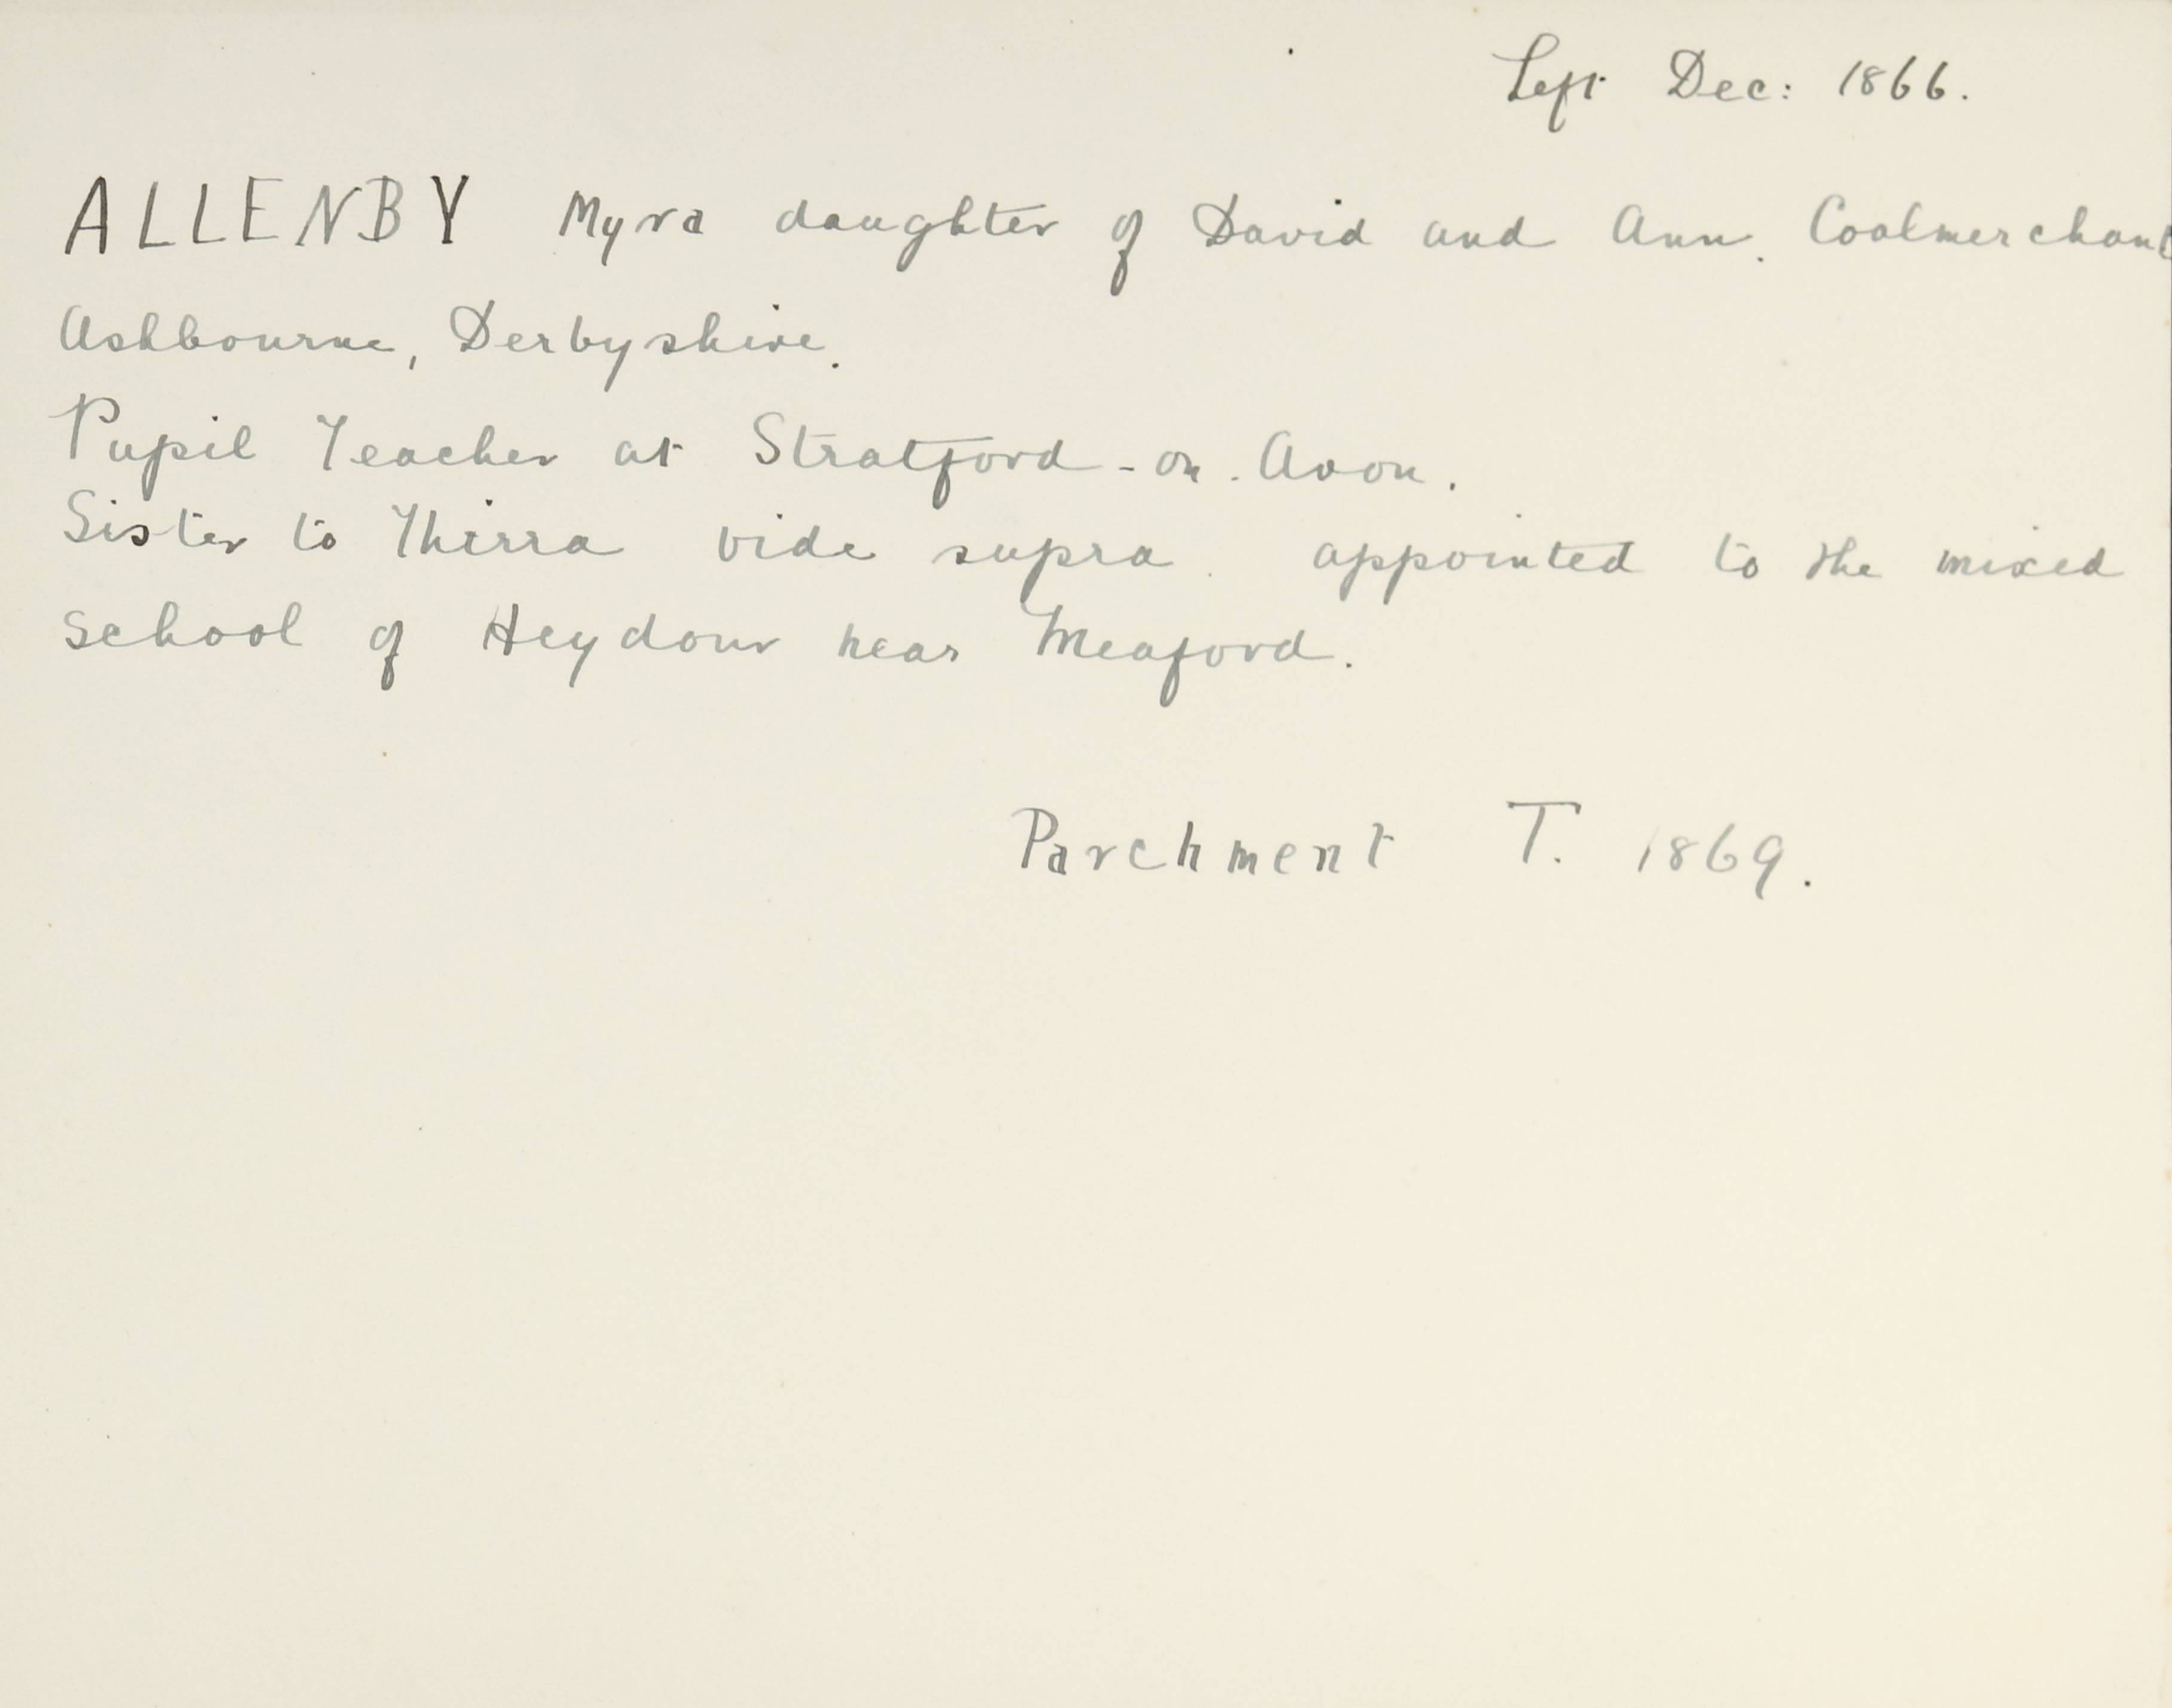 Left Dec: 1866.
ALLENBY Myra daughter of David and Ann. Coalmerchant
Ashbourne, Derbyshire.
Pupil Teacher at Stratford-on-Avon.
Sister to Thirra vide supra. appointed to the mixed
school of Heydour near Meaford.
Parchment T. 1869.